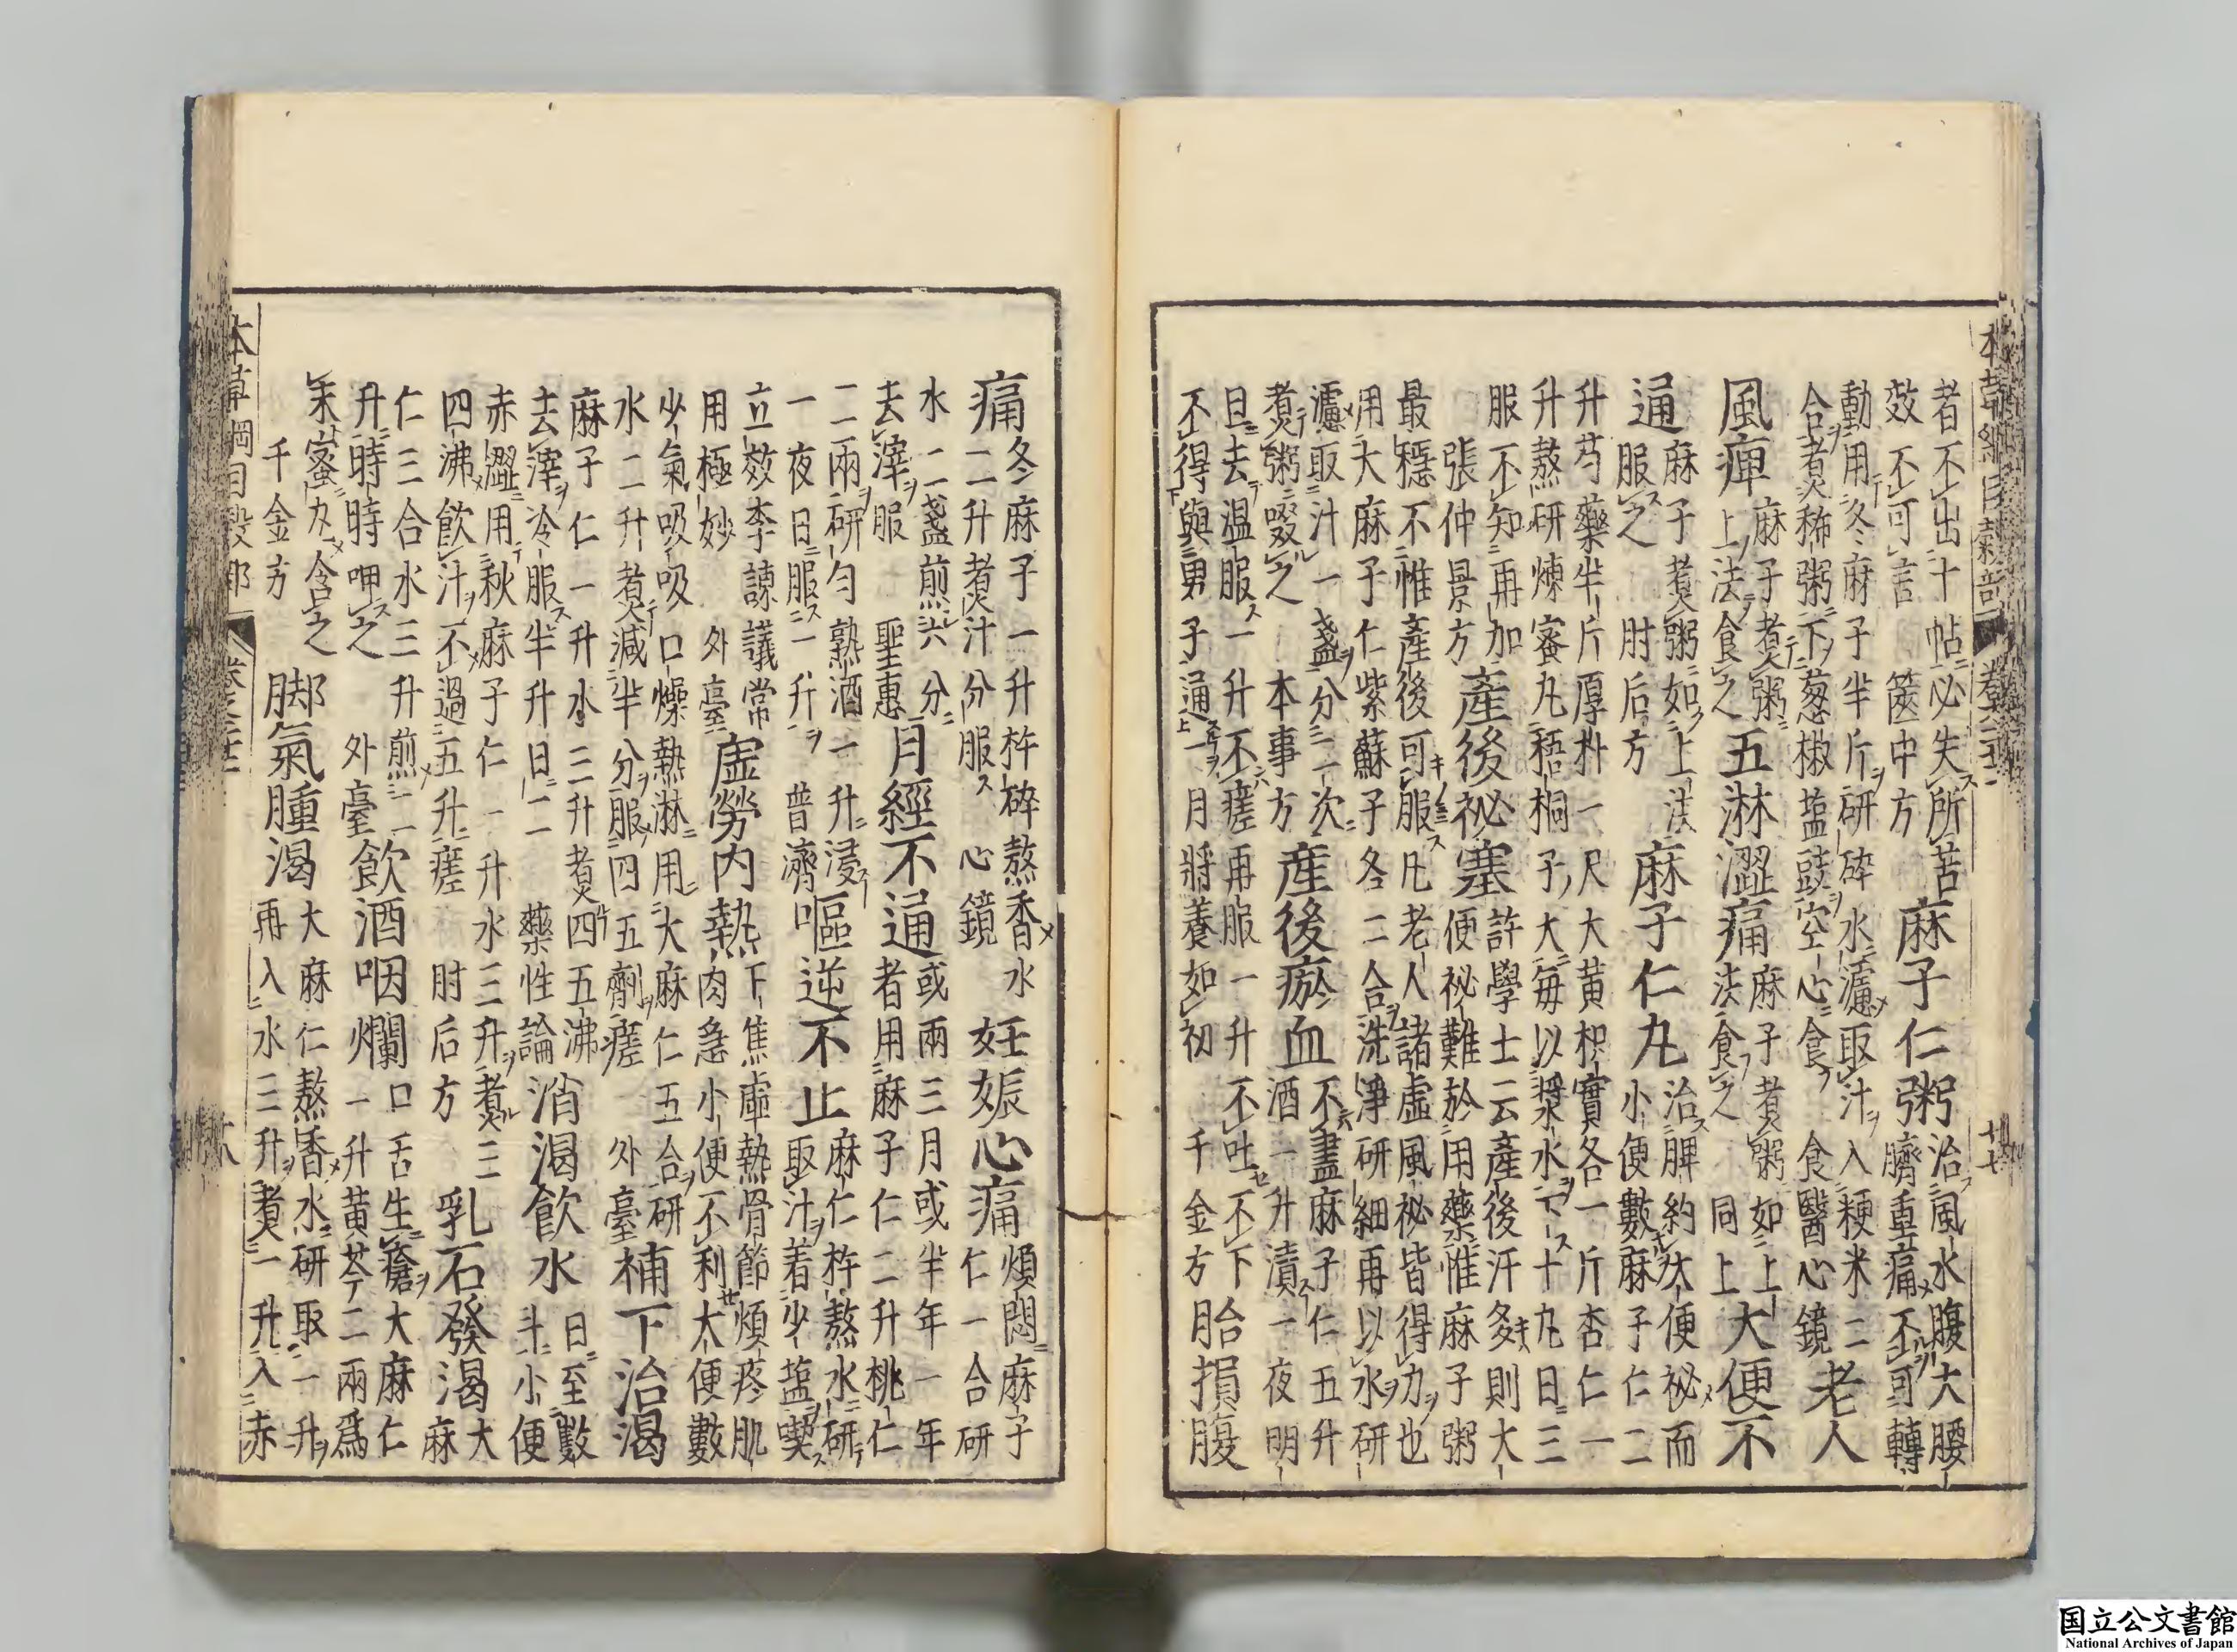 本草綱目穀部 卷之廿二 廿七
者不出十帖必失所苦
效不可言 篋中方
麻子仁粥
治風水腹大腰
臍重痛不可轉
動用冬麻子半斤研碎水濾取汁入粳米二
合煮稀粥下葱椒塩豉空心食 食醫心鏡
老人
風痺
麻子煮粥
上法食之
五淋澀痛
麻子煮粥如上
法食之 同上
大便不
通
麻子煮粥如上法
服之 肘后方
麻子仁丸
治脾約大便祕而
小便數麻子仁二
升芍藥半斤厚朴一尺大黄枳實各一斤杏仁一
升熬研煉蜜丸梧桐子大毎以漿水下十丸日三
服不知再加
張仲景方
產後祕塞
許學士云產後汗多則大
便祕難於用藥惟麻子粥
最穩不惟產後可服凡老人諸虛風祕皆得力也
用大麻子仁紫蘇子各二合洗淨研細再以水研
濾取汁一盞分二次
煮粥啜之 本事方
產後瘀血
不盡麻子仁五升
酒一升漬一夜明
旦去温服一升不瘥再服一升不吐不下
不得與男子通一月將養如初 千金方
胎損腹
痛
冬麻子一升杵碎熬香水
二升煮汁分服 心鏡
妊娠心痛
煩悶麻子
仁一合研
水二盞煎六分
去滓服 聖惠
月經不通
或兩三月或半年一年
者用麻子仁二升桃仁
二兩研勻熟酒一升浸
一夜日服一升 普濟
嘔逆不止
麻仁杵熬水研
取汁着少塩喫
立效李諫議常
用極妙 外臺
虛勞内熱
下焦虛熱骨節煩疼肌
肉急小便不利大便數
少氣吸吸口燥熱淋用大麻仁五合研
水二升煮減半分服四五劑瘥 外臺
補下治渴
麻子仁一升水三升煮四五沸
去滓冷服半升日二 藥性論
消渴飲水
日至數
斗小便
赤澀用秋麻子仁一升水三升煮三
四沸飲汁不過五升瘥 肘后方
乳石發渴
大
麻
仁三合水三升煎二
升時時呷之 外臺
飲酒咽爛
口舌生瘡大麻仁
一升黄芩二兩爲
末蜜丸含之
千金方
脚氣腫渴
大麻仁熬香水研取一升
再入水三升煮一升入赤
本草綱目穀部 卷之廿二
国立公文書館
National Archives of Japan